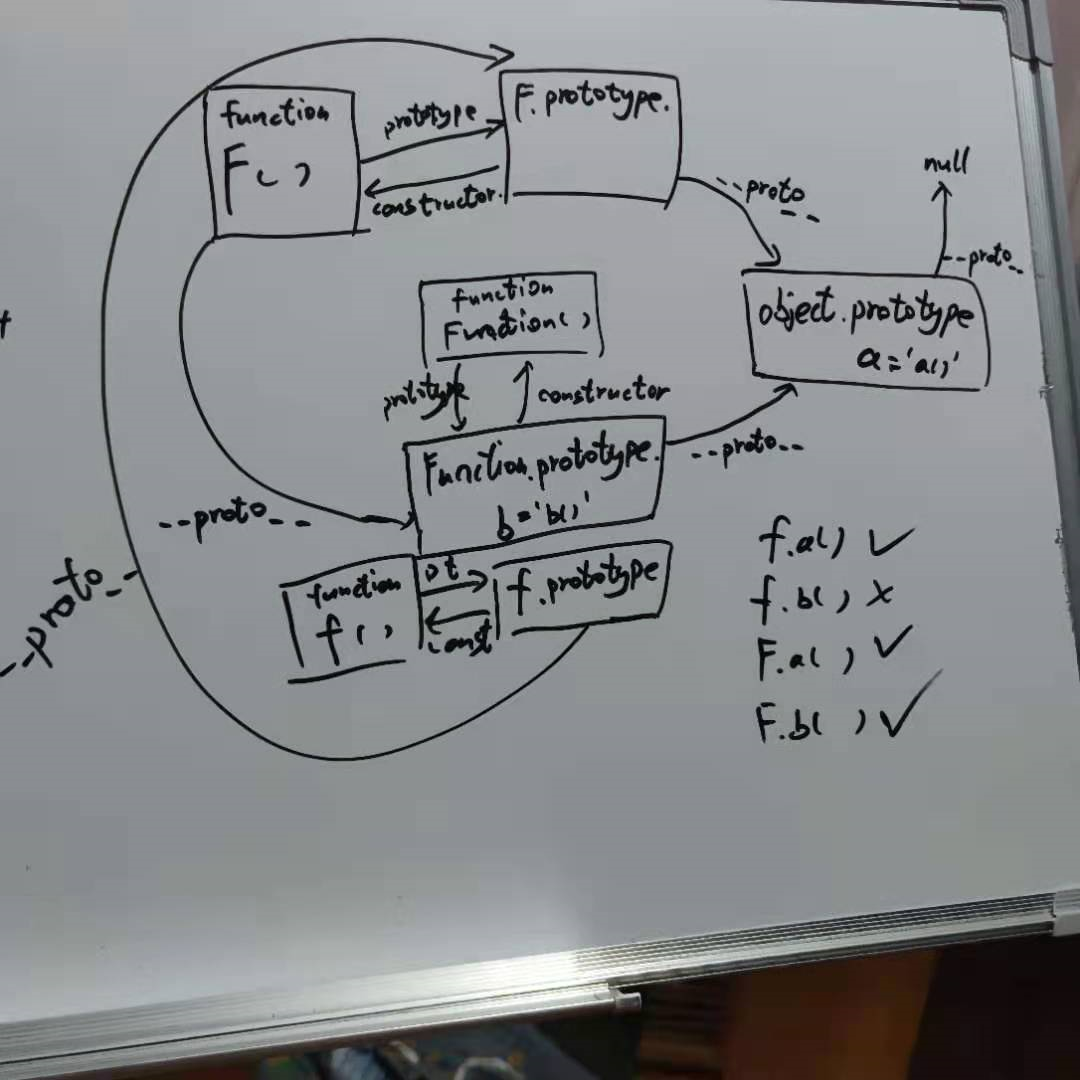 function
F()
prototype
constructor.
F.prototype.
--proto--
null
--proto--
object.prototype
a='a()'
function
Function()
prototype
constructor
Function.prototype.
b='b()'
--proto--
--proto--
function
f()
pt
const
f.prototype
--proto--
f.a() ✓
f.b() ×
F.a() ✓
F.b() ✓